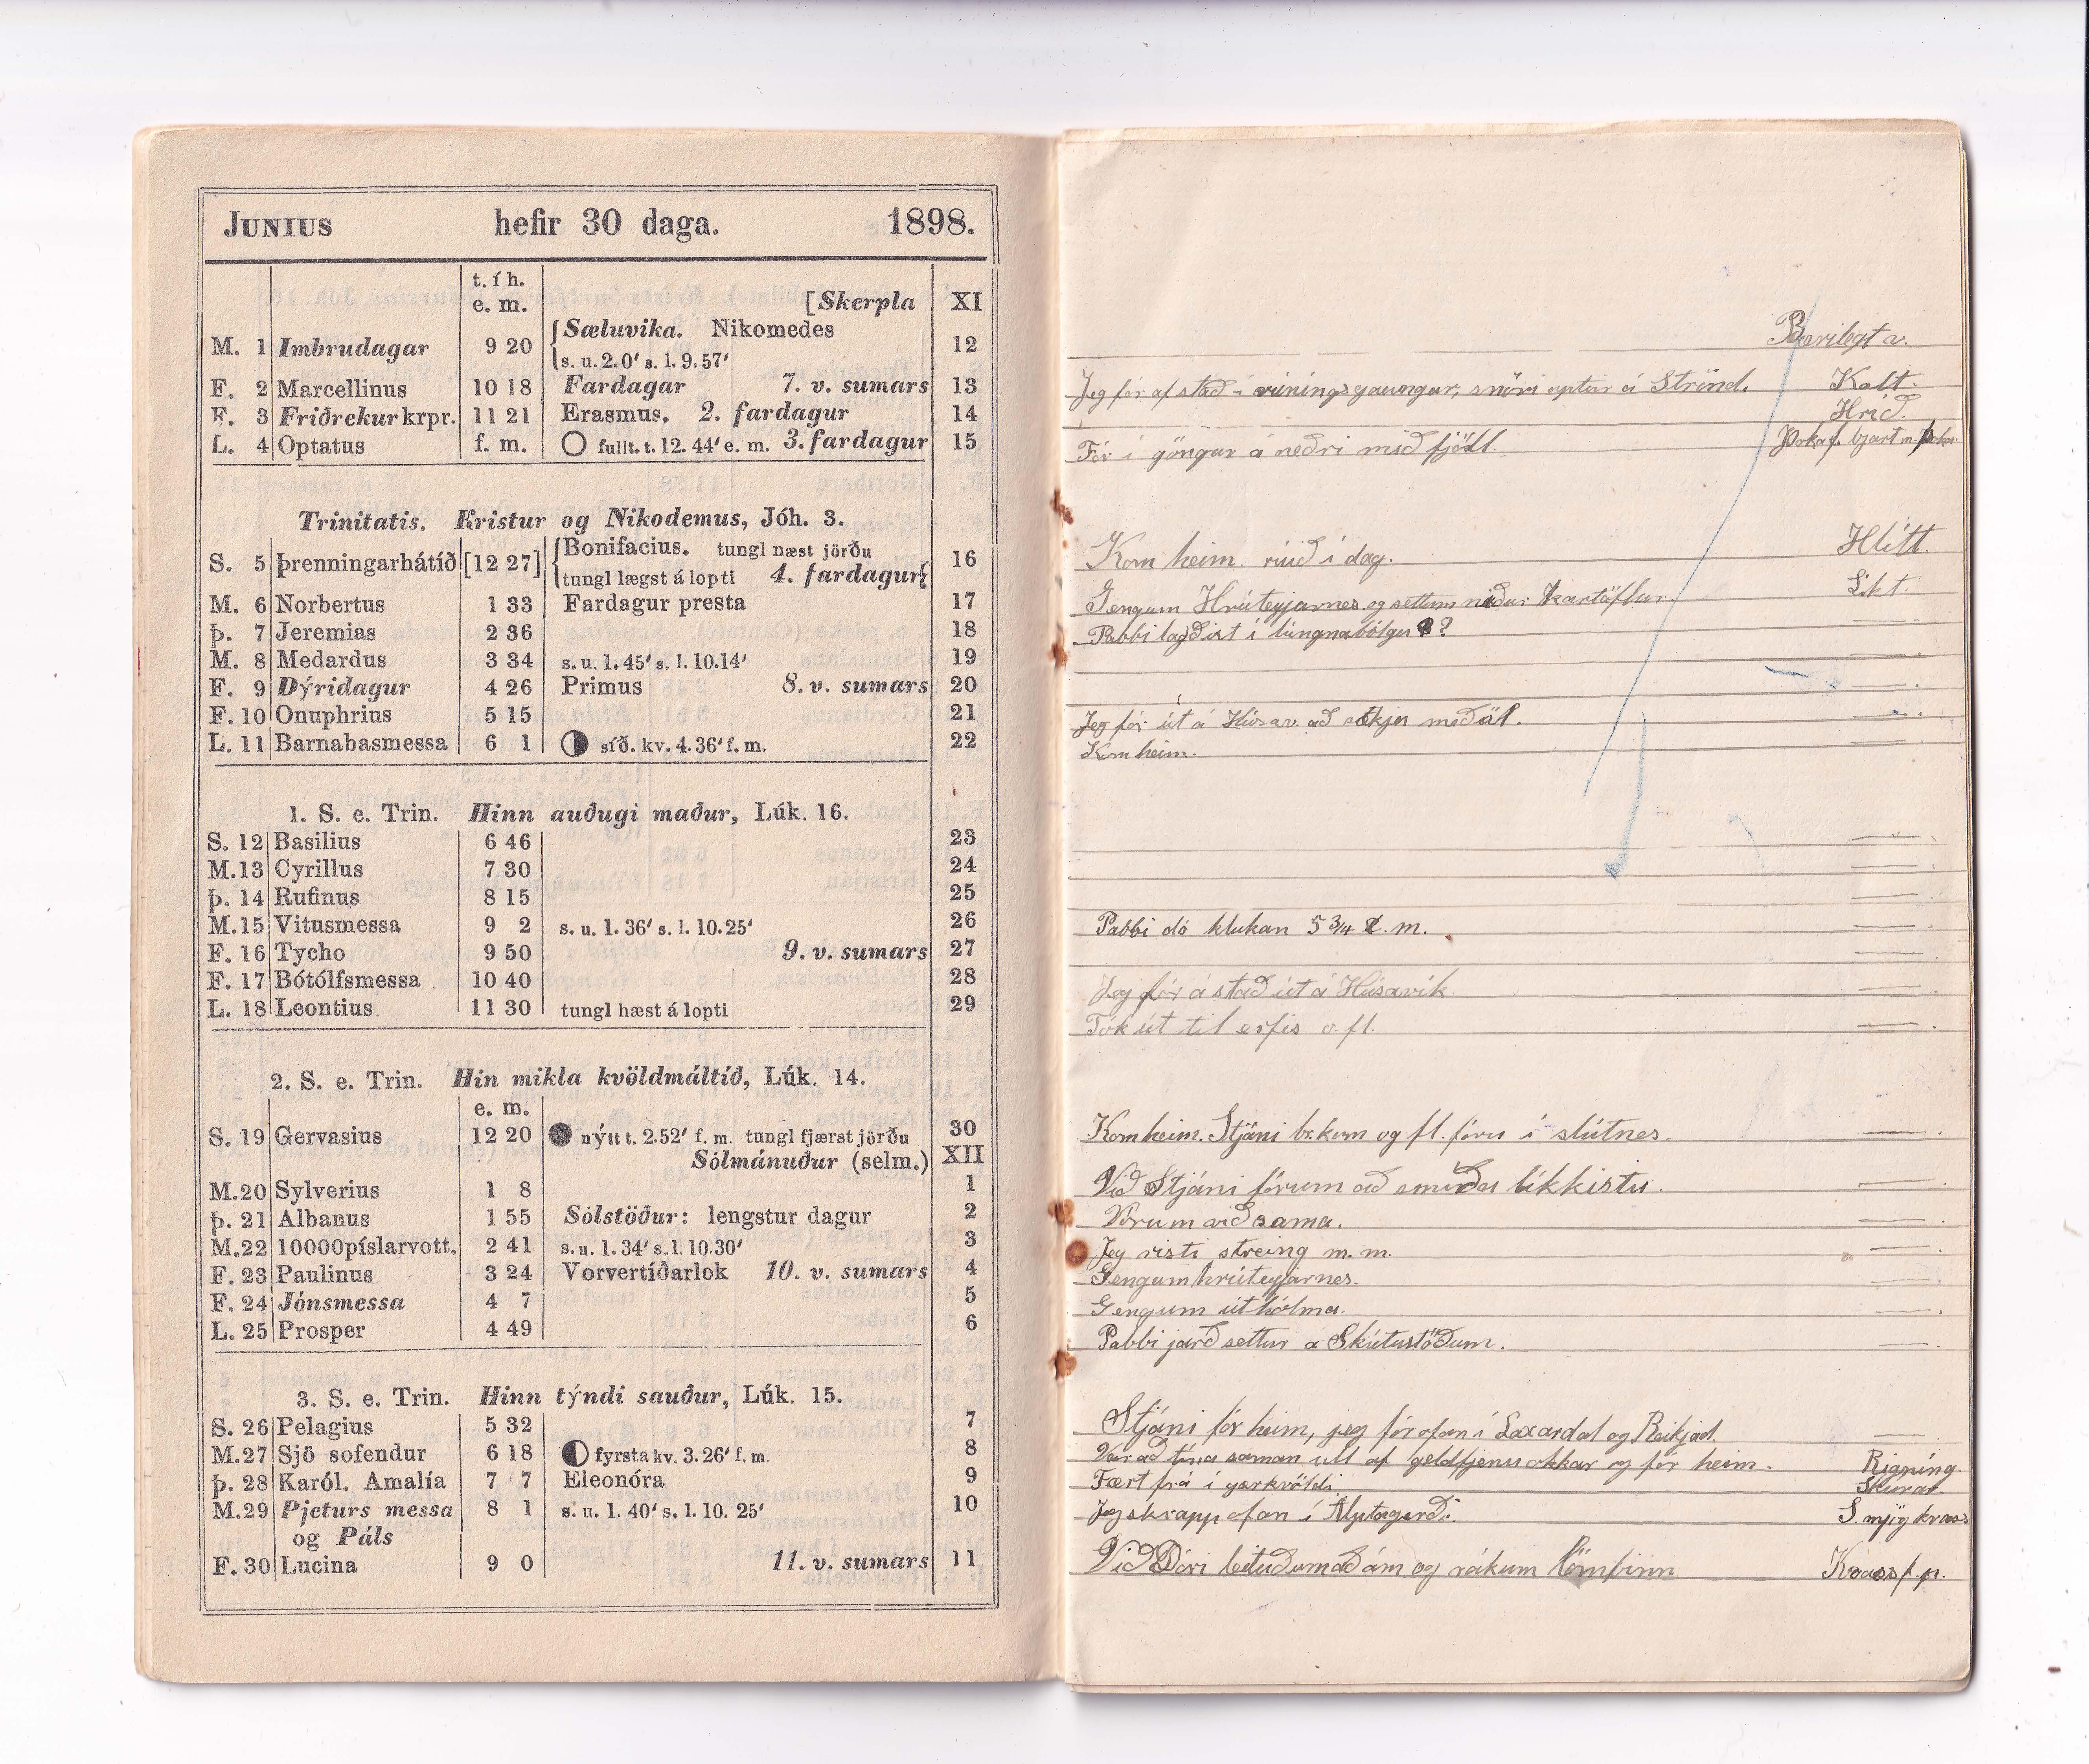 JUNIUS hefir 30 daga. 1898.
t. í h.
e. m. [Skerpla XI
M. 1 Imbrudagar 9 20 {Sæluvika. Nikomedes 12
s. u. 2.0' s. l. 9.57'
F. 2 Marcellinus 10 18 Fardagar 7. v. sumars 13
F. 3 Friðrekur krpr. 11 21 Erasmus. 2. fardagur 14
L. 4 Optatus f. m. fullt. t. 12. 44' e. m. 3. fardagur 15
Trinitatis. Kristur og Nikodemus, Jóh. 3.
S. 5 þrenningarhátíð [12 27] {Bonifacius. tungl næst jörðu 16
tungl lægst á lopti 4. fardagur
M. 6 Norbertus 1 33 Fardagur presta 17
þ. 7 Jeremias 2 36 18
M. 8 Medardus 3 34 s. u. 1. 45' s. l. 10.14' 19
F. 9 Dýridagur 4 26 Primus 8. v. sumars 20
F. 10 Onuphrius 5 15 21
L. 11 Barnabasmessa 6 1 síð. kv. 4. 36' f. m. 22
1. S. e. Trin. Hinn auðugi maður, Lúk. 16.
S. 12 Basilius 6 46 23
M. 13 Cyrillus 7 30 24
þ. 14 Rufinus 8 15 25
M. 15 Vitusmessa 9 2 s. u. 1. 36' s. l. 10. 25' 26
F. 16 Tycho 9 50 9. v. sumars 27
F. 17 Bótólfsmessa 10 40 28
L. 18 Leontius 11 30 tungl hæst á lopti 29
2. S. e. Trin. Hin mikla kvöldmáltíð, Lúk. 14.
e. m.
S. 19 Gervasius 12 20 nýtt t. 2.52' f. m. tungl fjærst jörðu 30
Sólmánuður (selm.) XII
M. 20 Sylverius 1 8 1
þ. 21 Albanus 1 55 Sólstöður: lengstur dagur 2
M. 22 10000píslarvott. 2 41 s. u. 1. 34' s. l. 10.30' 3
F. 23 Paulinus 3 24 Vorvertíðarlok 10. v. sumars 4
F. 24 Jónsmessa 4 7 5
L. 25 Prosper 4 49 6
3. S. e. Trin. Hinn týndi sauður, Lúk. 15.
S. 26 Pelagius 5 32 7
M. 27 Sjö sofendur 6 18 fyrsta kv. 3. 26' f. m. 8
þ. 28 Karól. Amalía 7 7 Eleonóra 9
M. 29 Pjeturs messa 8 1 s. u. 1. 40' s. l. 10. 25' 10
og Páls
F. 30 Lucina 9 0 11. v. sumars 11
Bærilegt v.
Jeg fór af stað í rúníngsgaungar, snöri aptur á Strönd. Kalt.
Hríð.
Fór í göngur á neðri mið fjöll. Þoka f. bjart m. Þoka
Kom heim rúið í dag. Hlítt.
Gengum Hrúteyjarnes og settum niður kartöflur. Líkt.
Pabbi lagðist í lúngnabólgu ?
Jeg fór út á Húsav. að sækja meðöl.
Kom heim.
Pabbi dó klukan 5 3/4 e. m.
Jeg fór á stað út á Húsavík
Tók út til erfis o. fl.
Kom heim. Stjáni br. kom og fl. fóru í slútnes
Við Stjáni fórum að smiða líkkistu.
Vorum við sama.
Jeg risti streing m. m.
Gengum hrúteyjarnes.
Gengum út hólma.
Pabbi jarð settur a Skútustöðum.
Stjáni fór heim, jeg fór ofan í Laxardal og Reikjad.
Var að tína saman ull af geldfjenu okkar og fór heim. Rigning.
Fært frá í gærkvöldi Skurar.
Jeg skrapp ofan í Álptagerði. S. mjög kvass
Við Dóri leituðum að ám og rákum Kvass f. p.